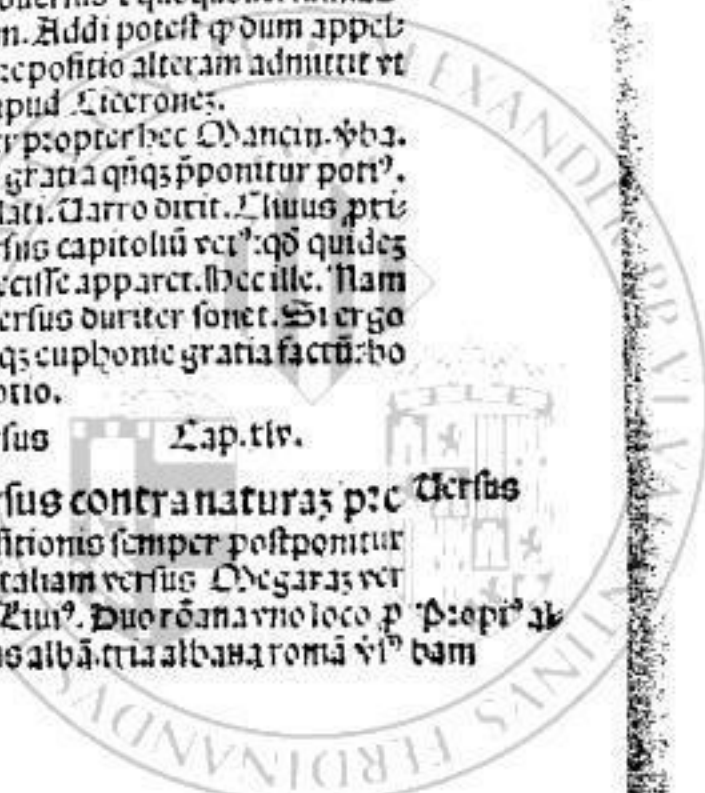 n. Addi potest ꝙ dum appel⸗
repositio alteram admittit vt
apud Ciceroneꝫ.
r propter hec Mancin. v̄ba.
gratia qn̄qꝫ p̄ponitur poti⁹.
lati. Uarro dicit. Cliuus pri⸗
sus capitoliū vet⁹:qd̄ quideꝫ
ecisse apparet. Hec ille. Nam
ersus duriter sonet. Si ergo
qꝫ euphonie gratia factū: ho
otio.
sus Cap. xlv.
sus contra naturaꝫ pre Uersus
sitionis semper postponitur
taliam versus Megaraꝫ ver
Liui⁹. Duo rōana vno loco ꝓ Propi⁹ al⸗
s albā. tria albana romā v̓s⁹ bam
ALEXANDER PP VI VALENTINUS FERDINANDVS